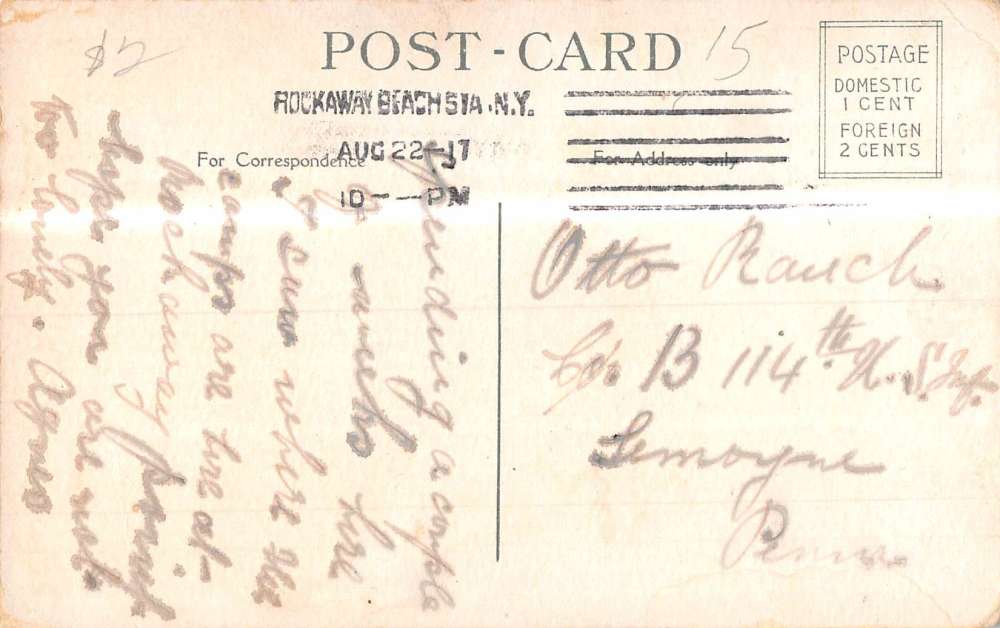 $2
15
POST-CARD
POSTAGE
DOMESTIC
1 CENT
FOREIGN
2 CENTS
ROCKAWAY BEACH STA. N.Y.
AUG 22-17
10--PM
For Correspondence
For Address only
Spending a couple
of weeks here
saw where the
camps are here at-
Rockaway point
hope you are not
too lonely. Agnes
Otto Rauch
Co. B 114th U.S. Inf.
Lemoyne
Penna.